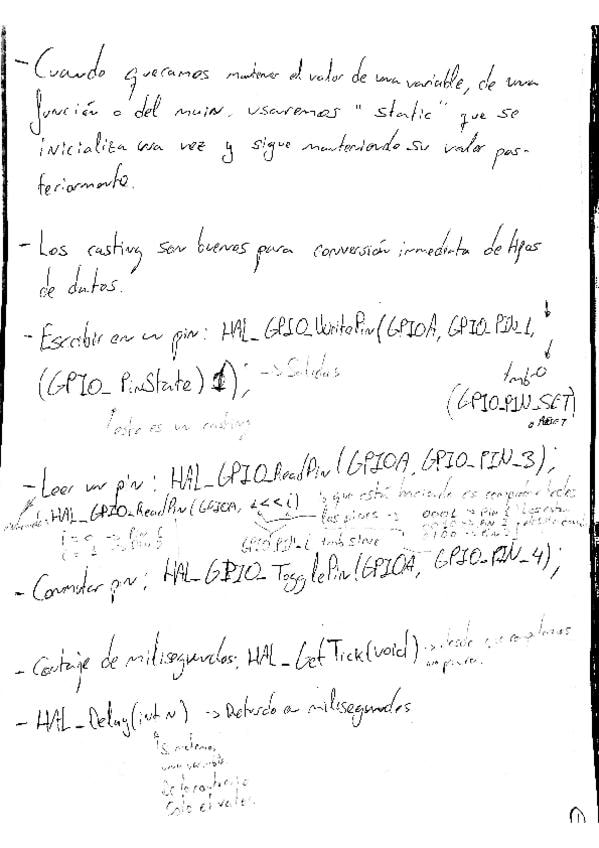 - Cuando queramos mantener el valor de una variable, de una
función o del main. usaremos "static" que se
inicializa una vez y sigue manteniendo su valor pos-
teriormente.
- Los casting son buenos para conversión inmediata de tipos
de datos.
- Escribir en un pin: HAL_GPIO_WritePin(GPIOA, GPIO_PIN_1,
(GPIO_PinState) 1); -> Salidas
(GPIO_PIN_SET)
o RESET
esto es un casting
- Leer un pin: HAL_GPIO_ReadPin(GPIOA, GPIO_PIN_3);
HAL_GPIO_ReadPin(GPIOA, 1<<i) lo que está haciendo es comprobar todos
los pines ->
GPIO_PIN_i tmb sirve
- Conmutar pin: HAL_GPIO_TogglePin(GPIOA, GPIO_PIN_4);
- Contaje de milisegundos: HAL_GetTick(void) -> desde que
empieza.
- HAL_Delay(int N) -> Retardo en milisegundos
Si metemos
una variable.
De lo contrario
Solo el valor.
1